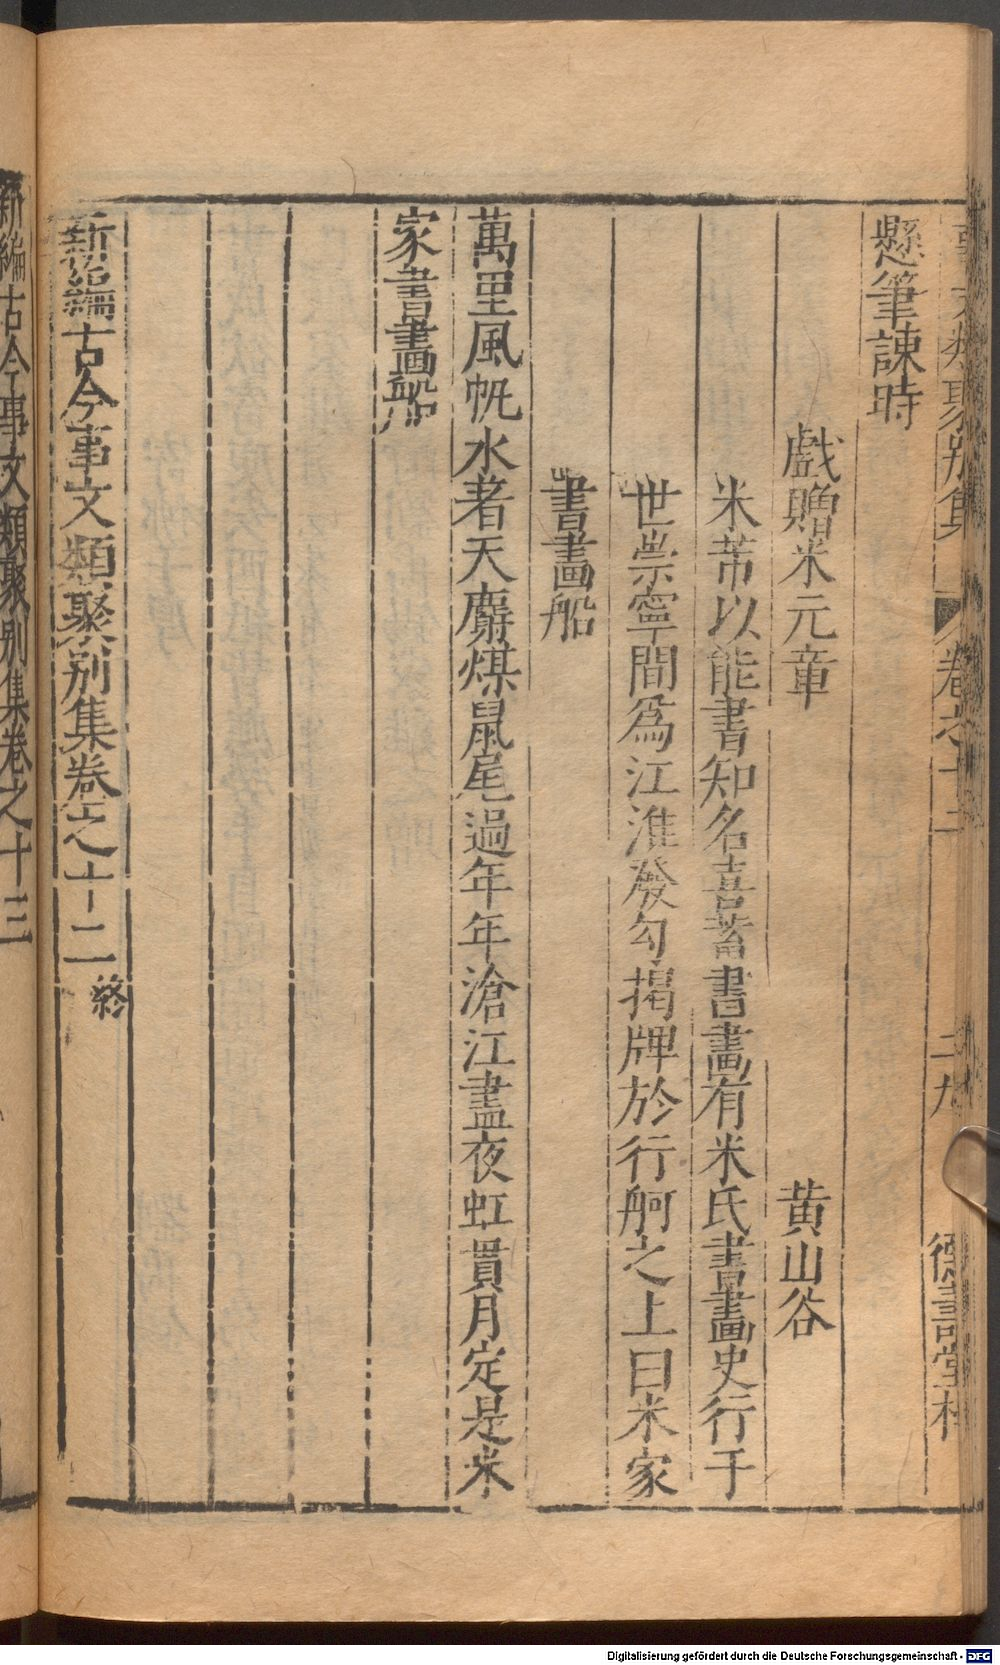 事文類聚別集 卷之十二 二九 德壽堂梓
懸筆諫時
戲贈米元章 黃山谷
米芾以能書知名喜蓄書畫有米氏書畫史行于
世崇寧間爲江淮發勾揭牌於行舸之上曰米家
書畫船
萬里風帆水著天麝煤鼠尾過年年滄江盡夜虹貫月定是米
家書畫船
新編古今事文類聚別集卷之十二 終
新編古今事文類聚別集卷之十三
Digitalisierung gefördert durch die Deutsche Forschungsgemeinschaft - DFG